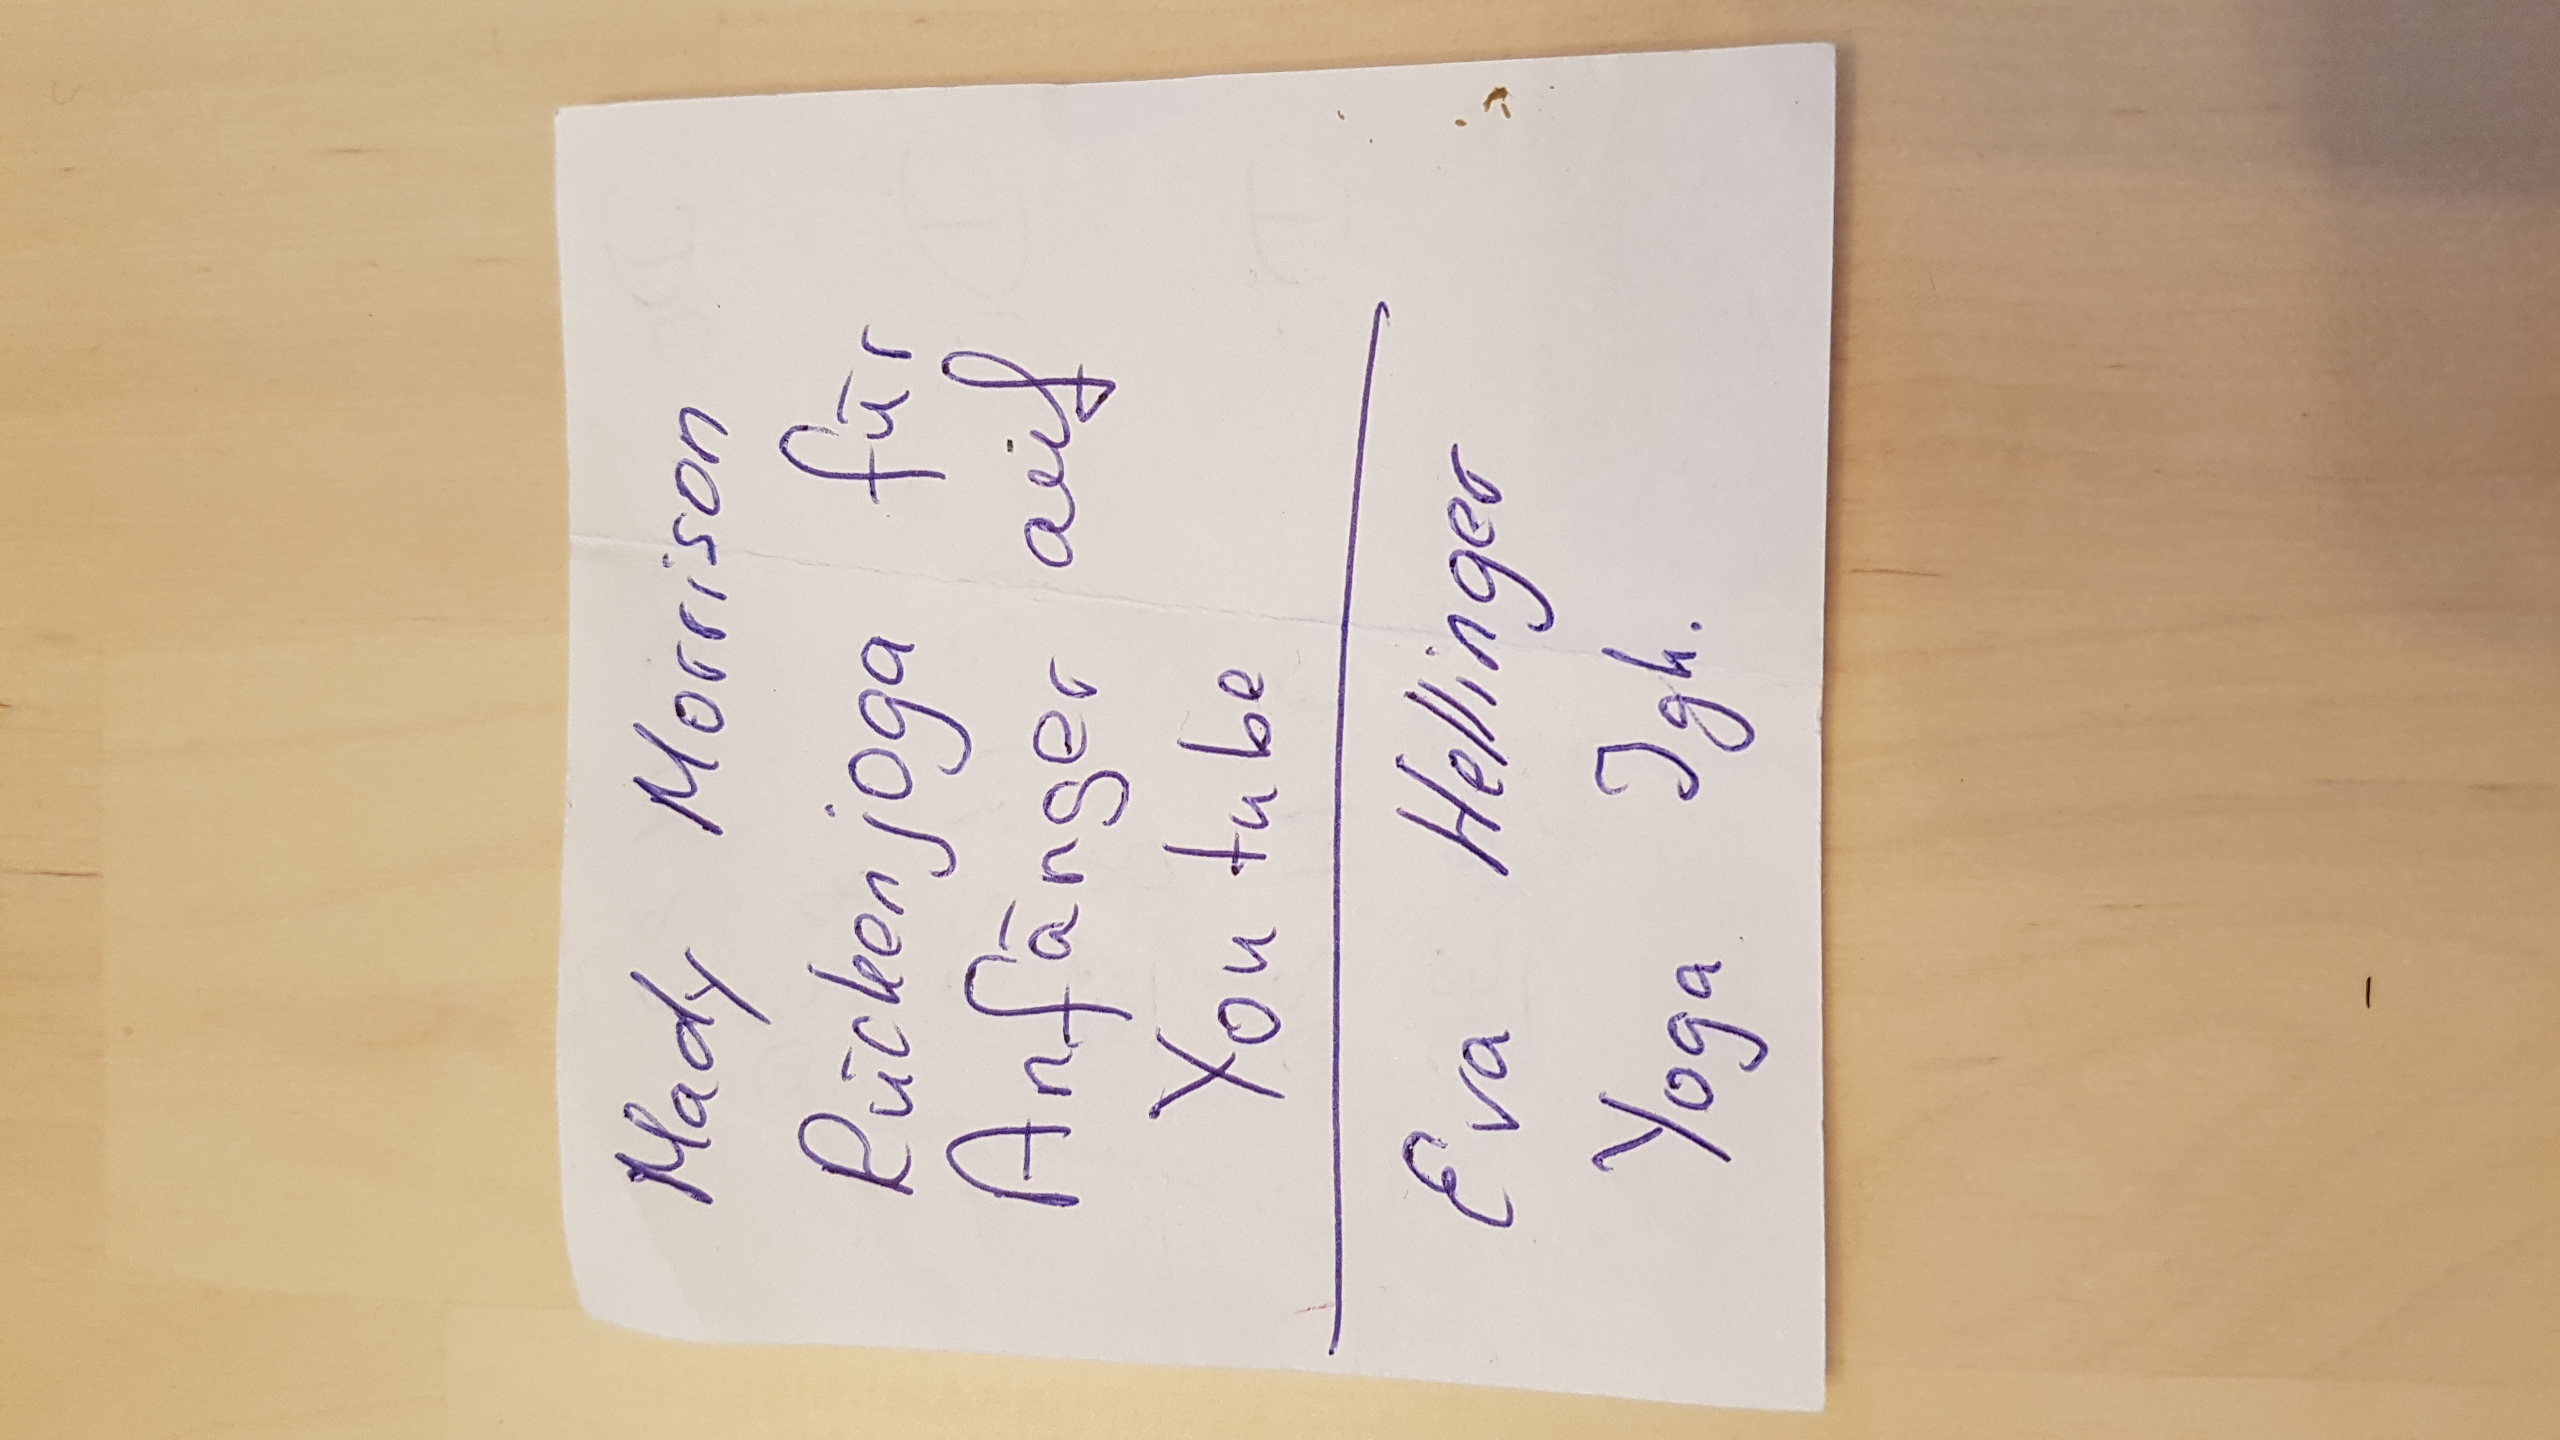 Mady Morrison
Rückenjoga für
Anfänger auf
You tube
Eva Hellinger
Yoga Igh.